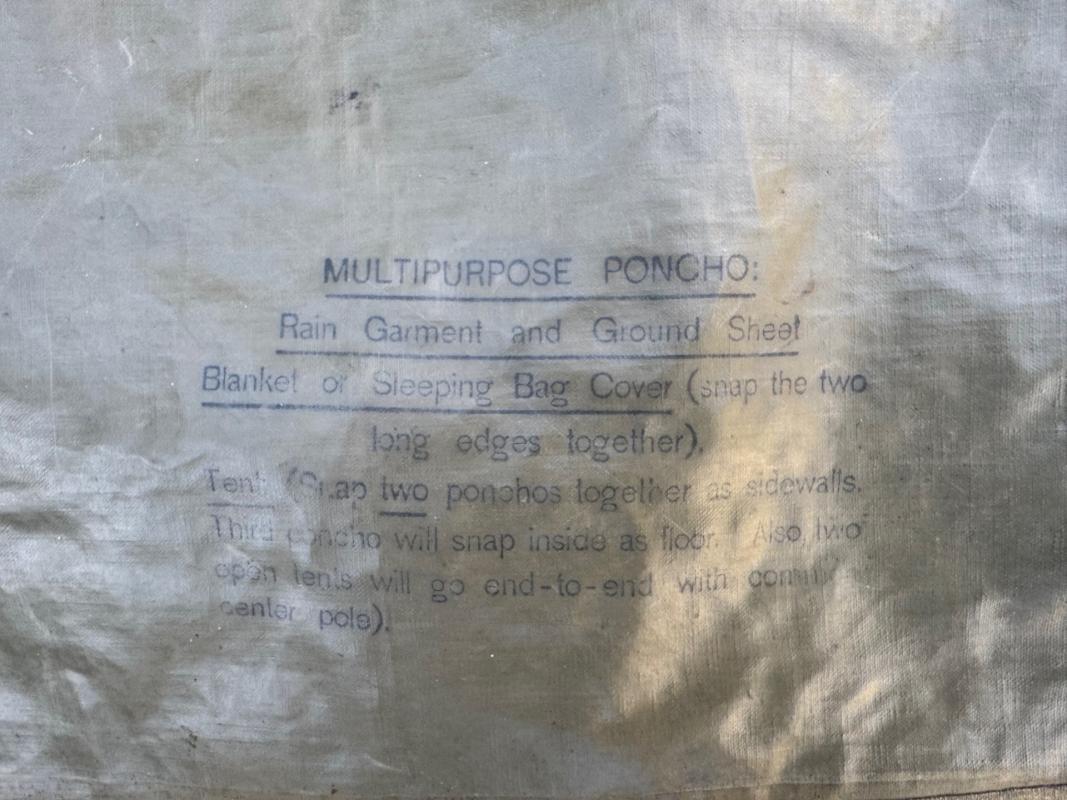 MULTIPURPOSE PONCHO:
Rain Garment and Ground Sheet
Blanket or Sleeping Bag Cover (snap the two
long edges together).
Tent (Snap two ponchos together as sidewalls.
Third poncho will snap inside as floor. Also, two
open tents will go end-to-end with
center pole).